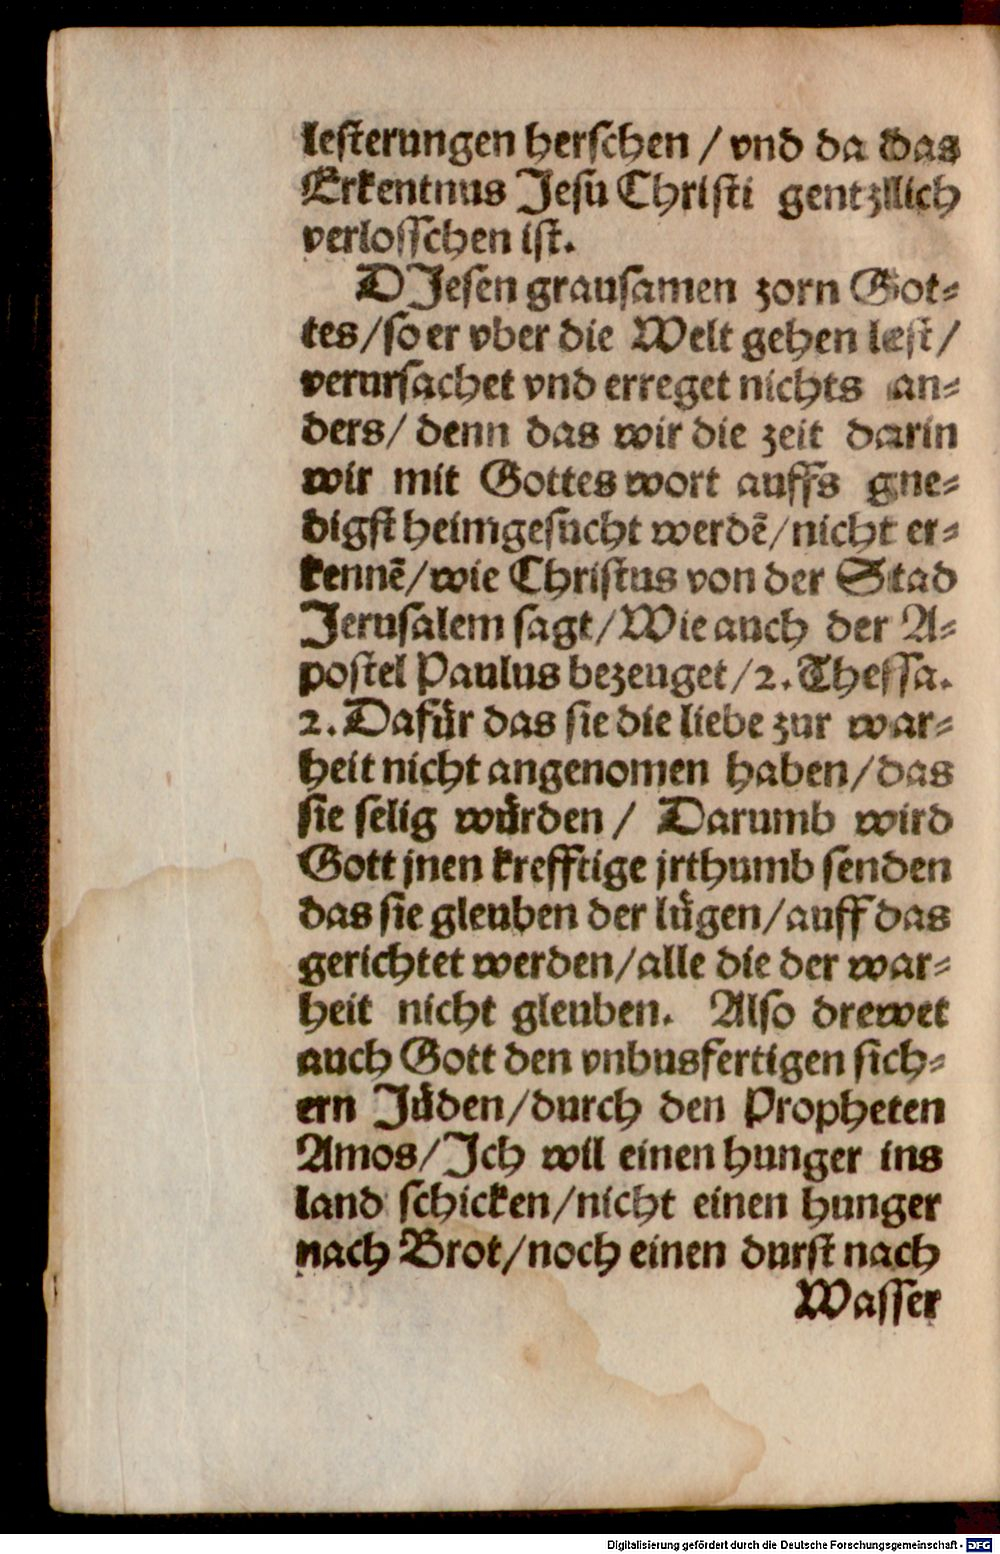 lesterungen herschen / vnd da das
Erkentnus Jesu Christi gentzllich
verlosschen ist.
DJesen grausamen zorn Got⸗
tes/so er vber die Welt gehen lest/
verursachet vnd erreget nichts an⸗
ders/ denn das wir die zeit darin
wir mit Gottes wort auffs gne⸗
digst heimgesucht werdē/nicht er⸗
kennē/wie Christus von der Stad
Jerusalem sagt/Wie auch der A⸗
postel Paulus bezeuget/2. Thessa.
2. Dafuͤr das sie die liebe zur war⸗
heit nicht angenomen haben/das
sie selig wuͤrden / Darumb wird
Gott jnen krefftige jrthumb senden
das sie gleuben der luͤgen/auff das
gerichtet werden/alle die der war⸗
heit nicht gleuben. Also drewet
auch Gott den vnbusfertigen sich⸗
ern Juͤden/durch den Propheten
Amos/Jch wil einen hunger ins
land schicken/nicht einen hunger
nach Brot/noch einen durst nach
Wasser
Digitalisierung gefördert durch die Deutsche Forschungsgemeinschaft - DFG